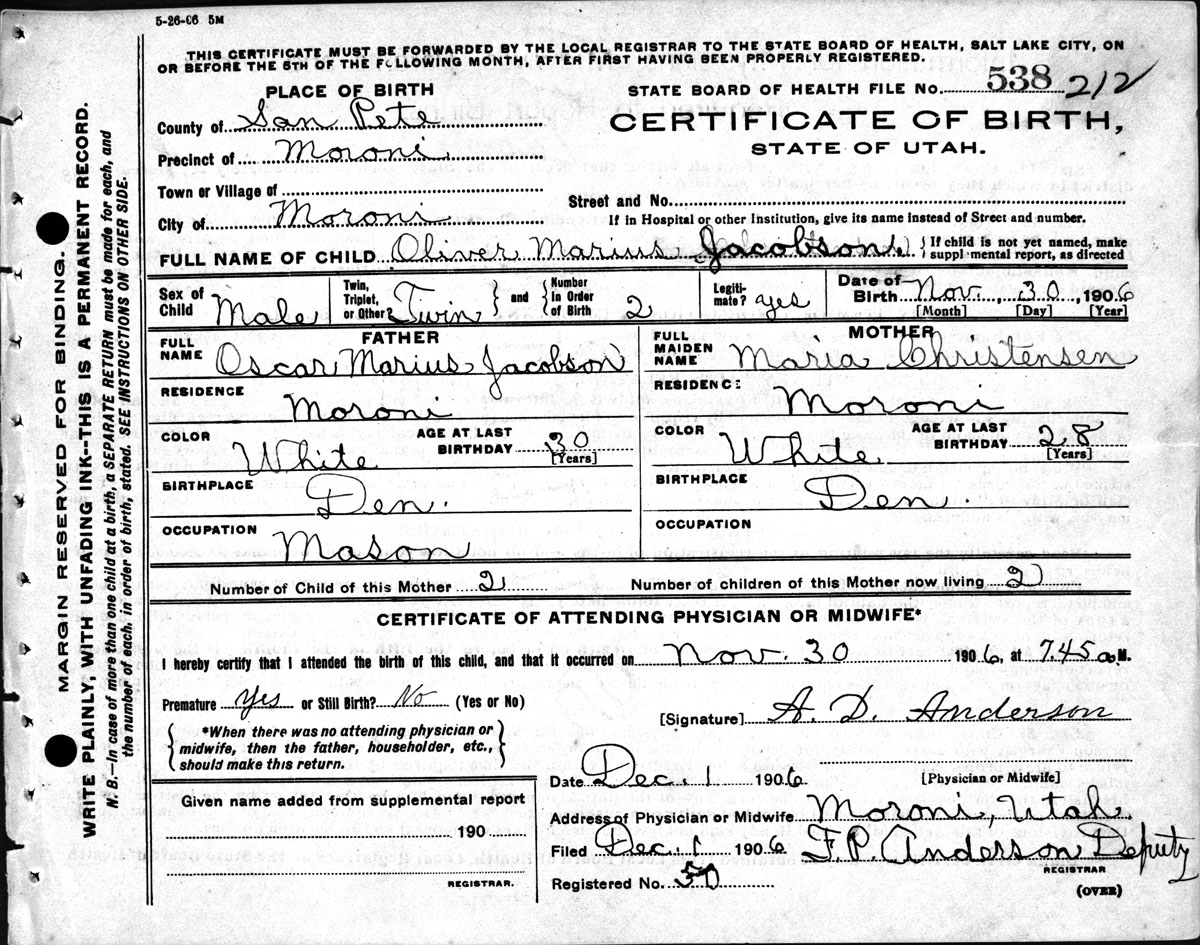 5-26-06 5M
THIS CERTIFICATE MUST BE FORWARDED BY THE LOCAL REGISTRAR TO THE STATE BOARD OF HEALTH, SALT LAKE CITY, ON
OR BEFORE THE 5TH OF THE FOLLOWING MONTH, AFTER FIRST HAVING BEEN PROPERLY REGISTERED.
PLACE OF BIRTH
STATE BOARD OF HEALTH FILE No. 538 212
County of San Pete
CERTIFICATE OF BIRTH,
STATE OF UTAH.
Precinct of Moroni
Town or Village of
Street and No.
City of Moroni
If in Hospital or other Institution, give its name instead of Street and number.
FULL NAME OF CHILD Oliver Marius Jacobson { If child is not yet named, make
supplemental report, as directed
Sex of Child Male
Twin, Triplet, or Other? Twin } and { Number in Order of Birth 2
Legitimate? yes
Date of Birth Nov. 30, 1906
[Month] [Day] [Year]
FATHER
FULL NAME Oscar Marius Jacobson
MOTHER
FULL MAIDEN NAME Maria Christensen
RESIDENCE Moroni
RESIDENCE Moroni
COLOR White AGE AT LAST BIRTHDAY 30 [Years]
COLOR White AGE AT LAST BIRTHDAY 28 [Years]
BIRTHPLACE Den.
BIRTHPLACE Den.
OCCUPATION Mason
OCCUPATION
Number of Child of this Mother 2 Number of children of this Mother now living 2
CERTIFICATE OF ATTENDING PHYSICIAN OR MIDWIFE*
I hereby certify that I attended the birth of this child, and that it occurred on Nov. 30 1906, at 7.45 a M.
Premature yes or Still Birth? No (Yes or No)
[Signature] A. D. Anderson
{ *When there was no attending physician or
midwife, then the father, householder, etc.,
should make this return. }
Date Dec. 1 1906 [Physician or Midwife]
Given name added from supplemental report
190
REGISTRAR.
Address of Physician or Midwife Moroni, Utah.
Filed Dec. 1 1906 F. P. Anderson Deputy
REGISTRAR
Registered No. 50
(OVER)
MARGIN RESERVED FOR BINDING.
WRITE PLAINLY, WITH UNFADING INK--THIS IS A PERMANENT RECORD.
N. B.—In case of more than one child at a birth, a SEPARATE RETURN must be made for each, and
the number of each, in order of birth, stated. SEE INSTRUCTIONS ON OTHER SIDE.